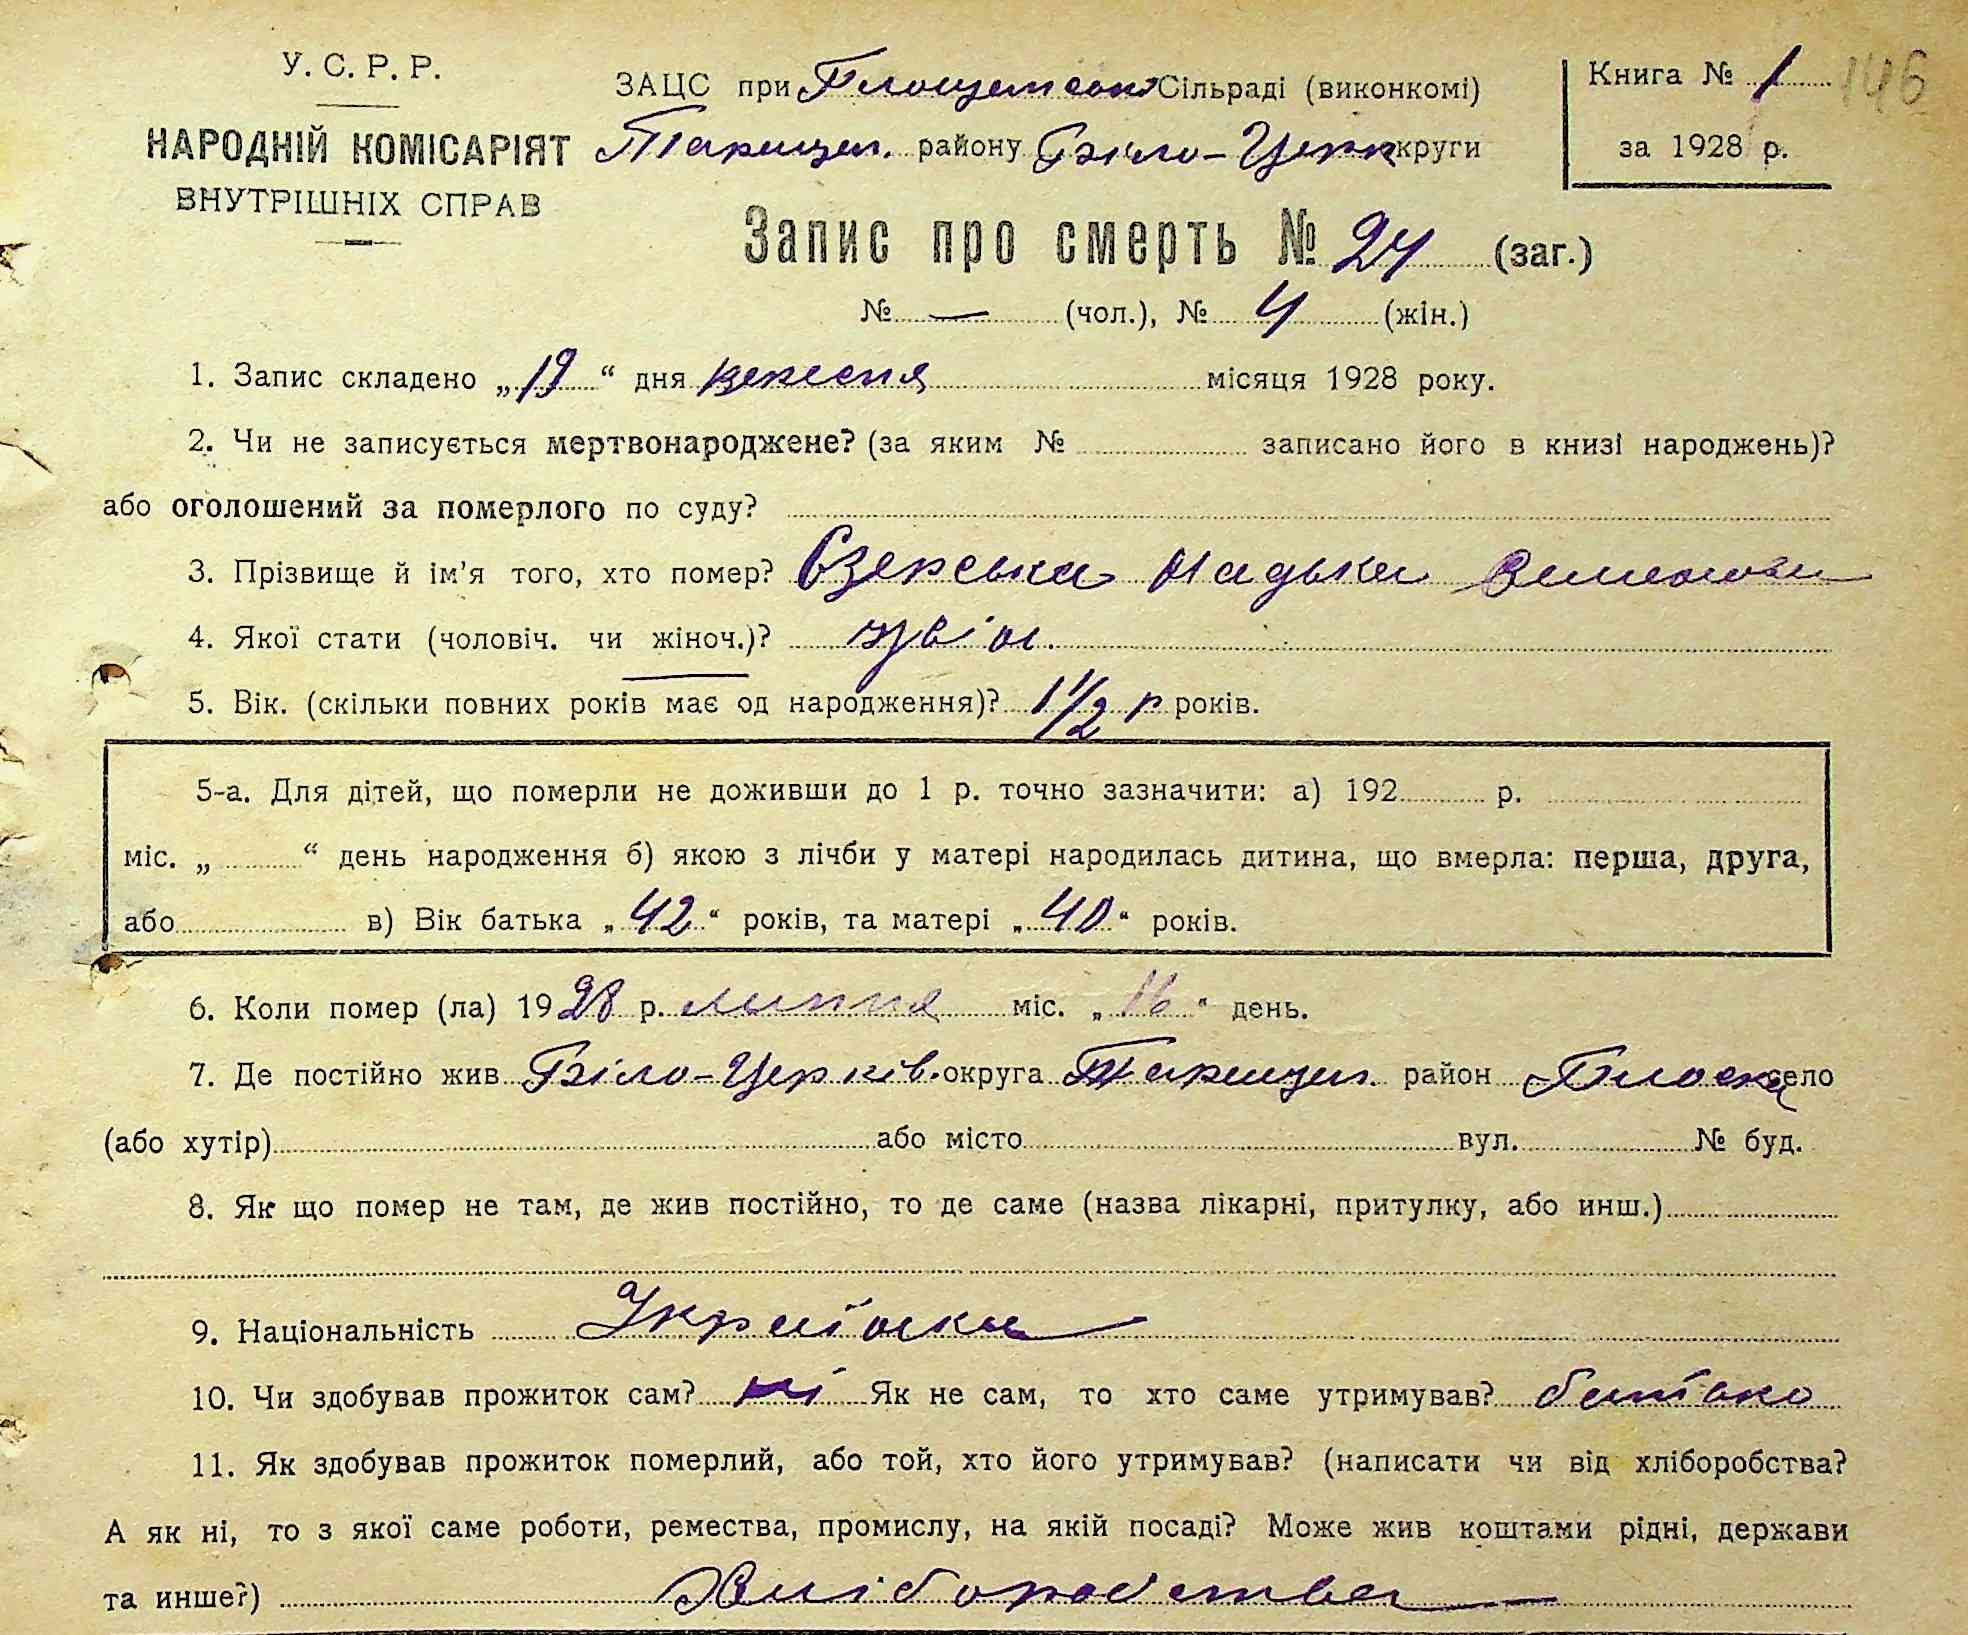 У. С. Р. Р.
НАРОДНІЙ КОМІСАРІЯТ
ВНУТРІШНІХ СПРАВ
ЗАЦС при Сільраді (виконкомі)
Таращан. району Біло-Церк округи
Книга № 1
146
за 1928 р.
Запис про смерть № 24 (заг.)
№ — (чол.), № 4 (жін.)
1. Запис складено „19“ дня вересня місяця 1928 року.
2. Чи не записується мертвонароджене? (за яким № записано його в книзі народжень)?
або оголошений за померлого по суду?
3. Прізвище й ім'я того, хто помер? Єзерська Надька
4. Якої стати (чоловіч. чи жіноч.)?
5. Вік. (скільки повних років має од народження)? 1 1/2 р років.
5-а. Для дітей, що померли не доживши до 1 р. точно зазначити: а) 192 р.
міс. „ “ день народження б) якою з лічби у матері народилась дитина, що вмерла: перша, друга,
або в) Вік батька „42“ років, та матері „40“ років.
6. Коли помер (ла) 1928 р. липня міс. „16“ день.
7. Де постійно жив Біло-Церків. округа Таращан. район Плоска село
(або хутір) або місто вул. № буд.
8. Як що помер не там, де жив постійно, то де саме (назва лікарні, притулку, або инш.)
9. Національність Українка
10. Чи здобував прожиток сам? ні Як не сам, то хто саме утримував? батько
11. Як здобував прожиток померлий, або той, хто його утримував? (написати чи від хліборобства?
А як ні, то з якої саме роботи, ремества, промислу, на якій посаді? Може жив коштами рідні, держави
та инше?) Хліборобства